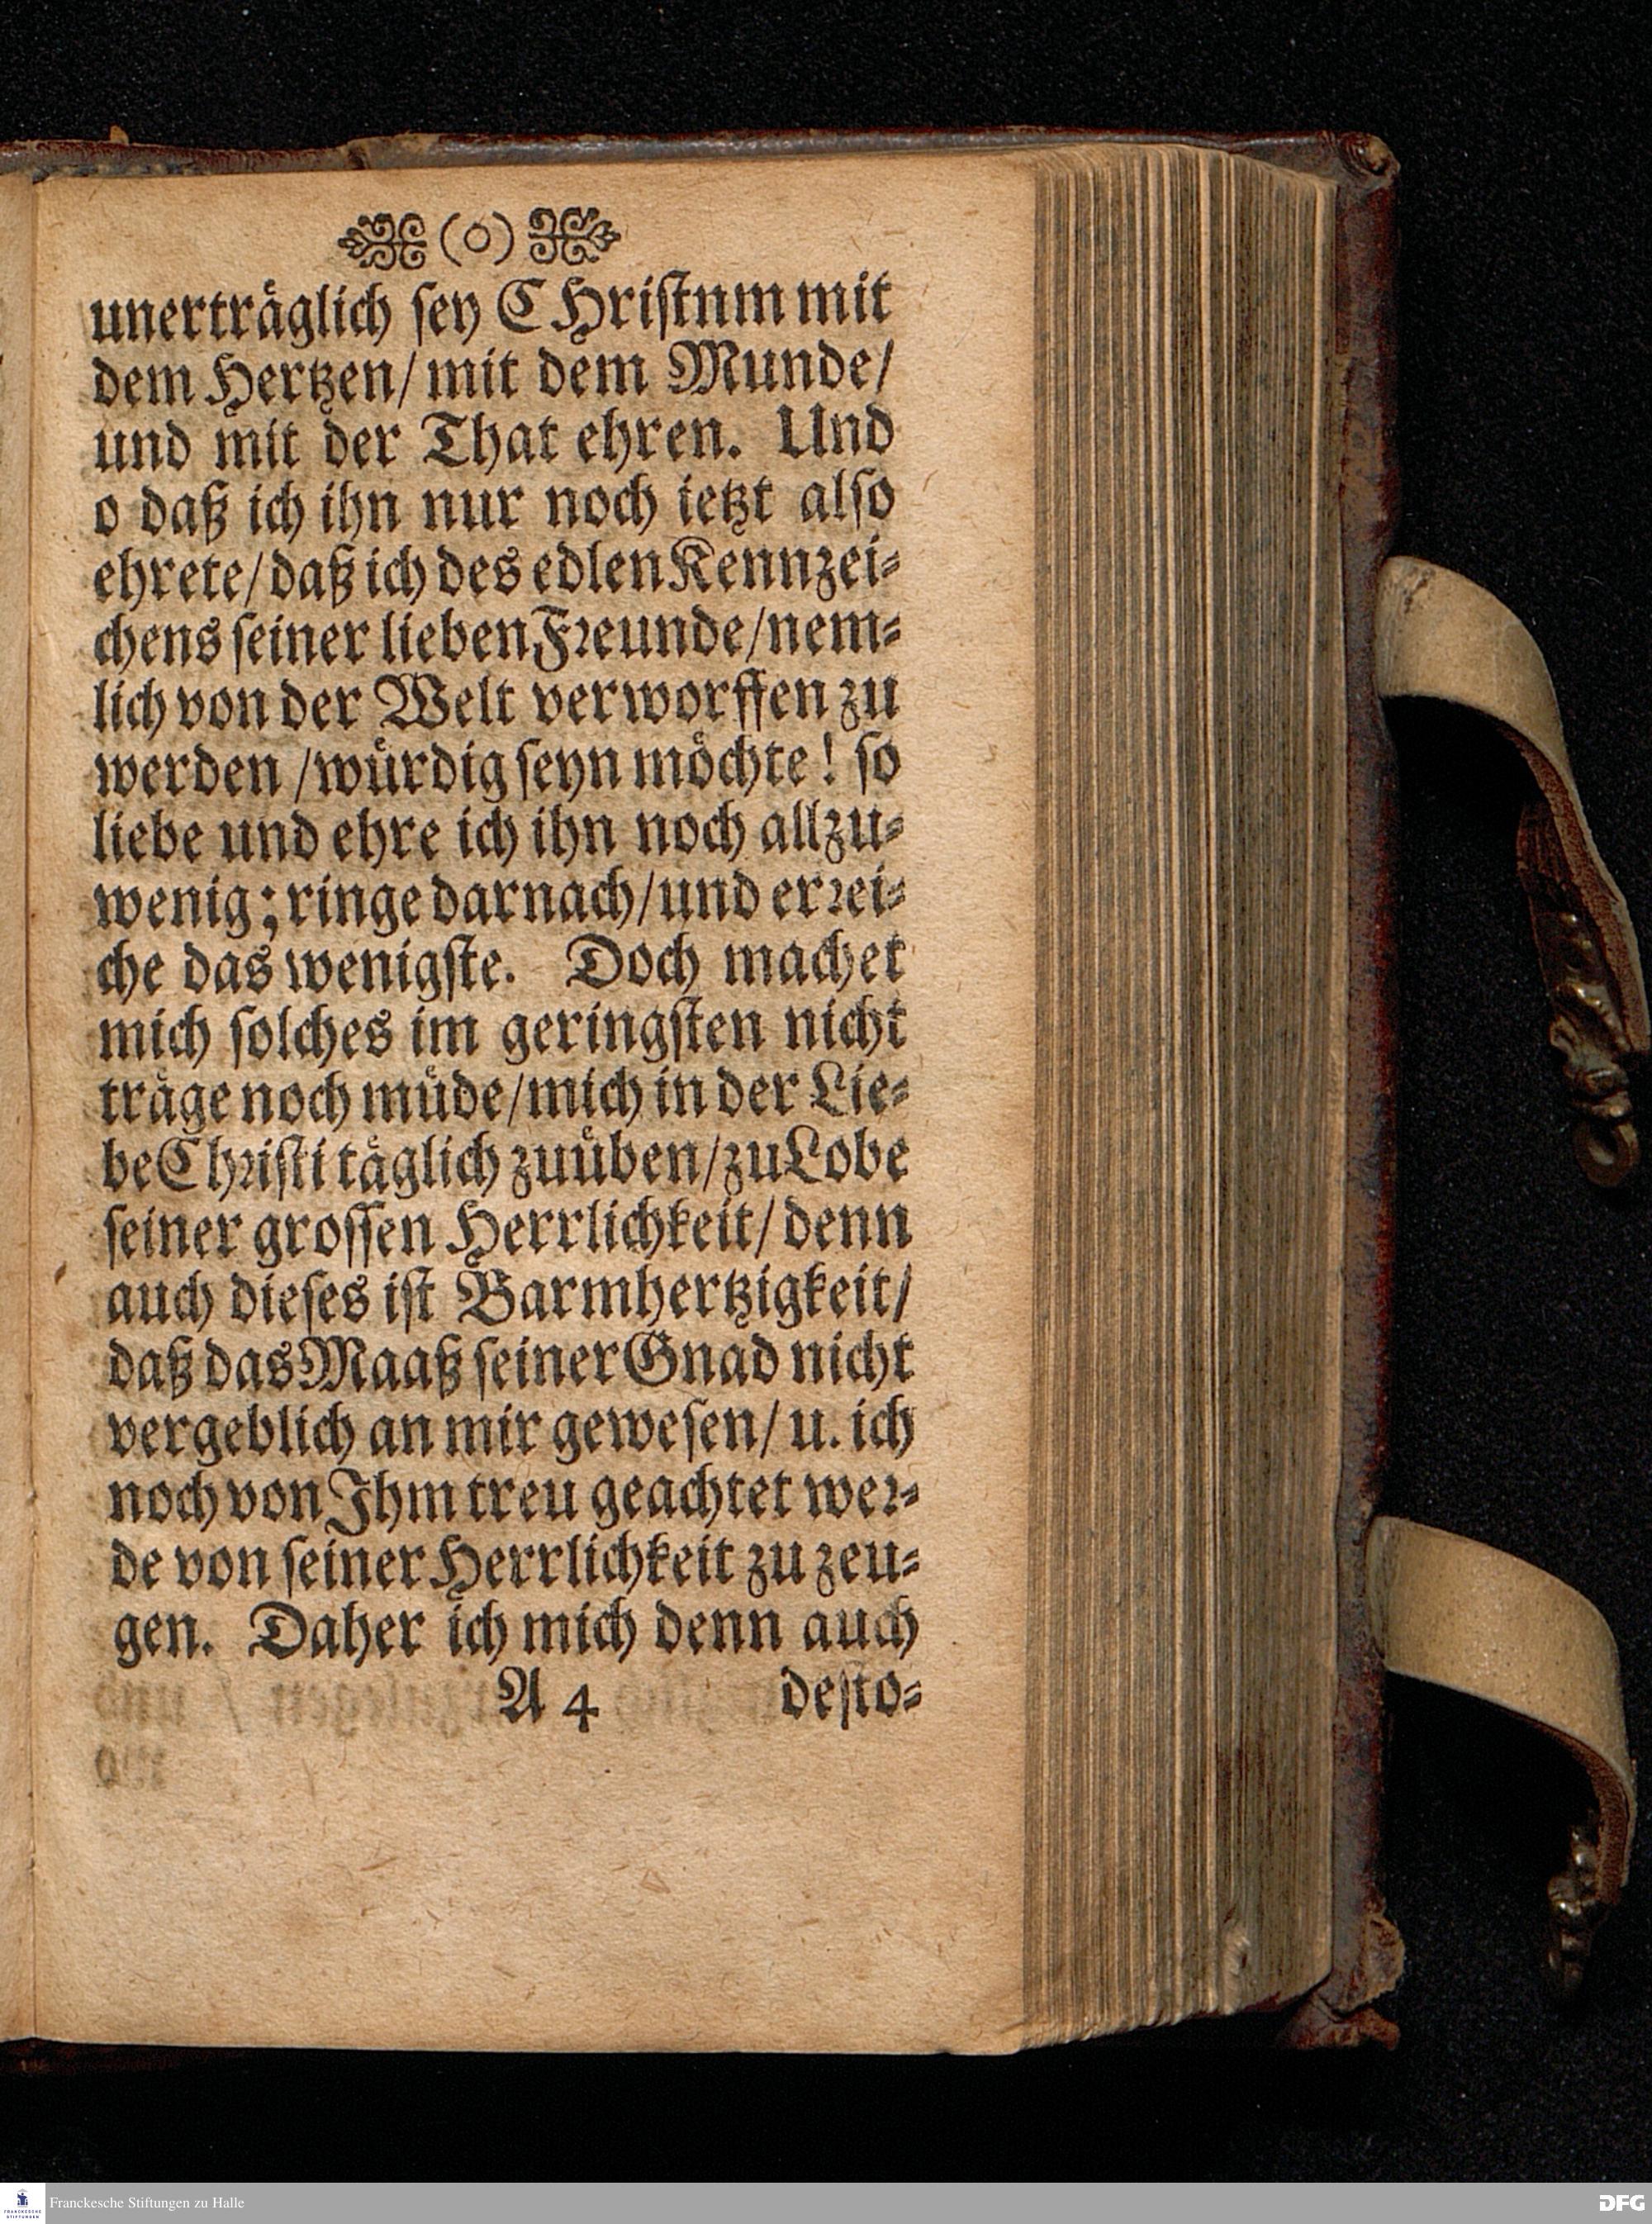 (o)
unerträglich ſey CHriſtnm mit
dem Hertzen/ mit dem Munde/
und mit der That ehren. Und
o daß ich ihn nur noch ietzt alſo
ehrete/ daß ich des edlen Kennzei⸗
chens ſeiner lieben Freunde/ nem⸗
lich von der Welt verworffen zu
werden / wuͤrdig ſeyn moͤchte! ſo
liebe und ehre ich ihn noch allzu⸗
wenig; ringe darnach/ und errei⸗
che das wenigſte. Doch machet
mich ſolches im geringſten nicht
traͤge noch muͤde/ mich in der Lie⸗
be Chriſti taͤglich zuuͤben/ zu Lobe
ſeiner groſſen Herrlichkeit/ denn
auch dieſes iſt Barmhertzigkeit/
daß das Maaß ſeiner Gnad nicht
vergeblich an mir geweſen/ u. ich
noch von Jhm treu geachtet wer⸗
de von ſeiner Herrlichkeit zu zeu⸗
gen. Daher ich mich denn auch
A 4 deſto⸗
Franckesche Stiftungen zu Halle
FRANCKESCHE STIFTUNGEN
DFG